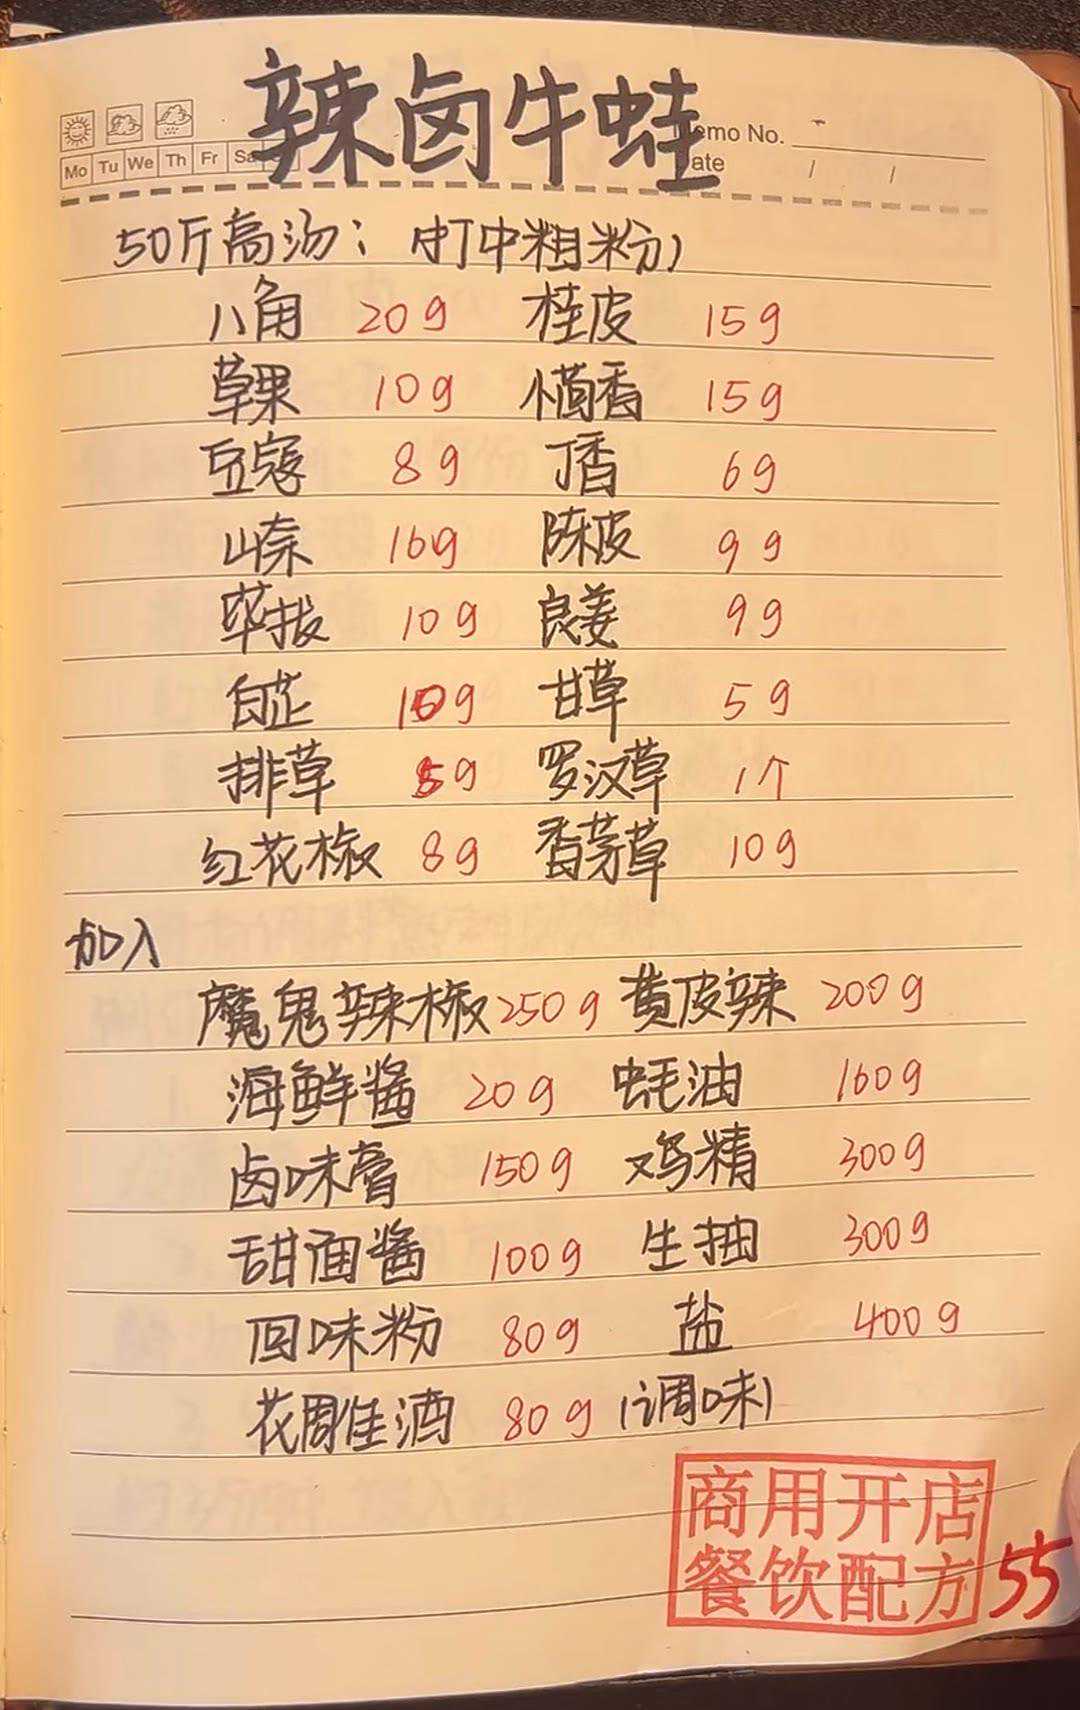 辣卤牛蛙
Memo No.
Mo Tu We Th Fr Sa
Date / /
50斤高汤：（打中粗粉）
八角 20g 桂皮 15g
草果 10g 小茴香 15g
豆寇 8g 丁香 6g
山奈 16g 陈皮 9g
荜拔 10g 良姜 9g
白芷 10g 甘草 5g
排草 5g 罗汉草 1个
红花椒 8g 香茅草 10g
加入
魔鬼辣椒 250g 黄皮辣 200g
海鲜酱 20g 蚝油 160g
卤味膏 150g 鸡精 300g
甜面酱 100g 生抽 300g
回味粉 80g 盐 400g
花雕酒 80g（调味）
商用开店
餐饮配方 55